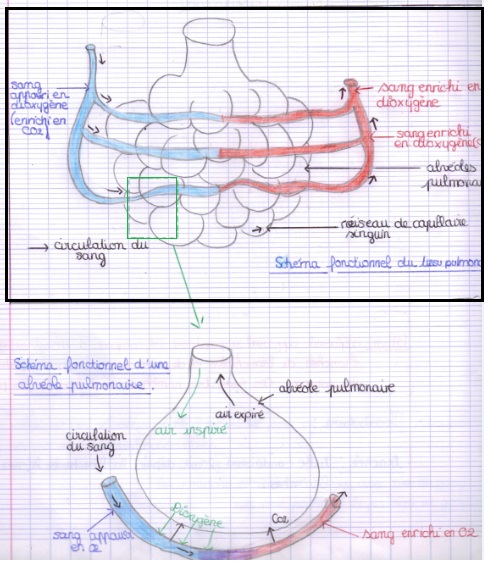 sang
appauvri en
dioxygène
(enrichi en
CO2)
sang enrichi en
dioxygène
sang enrichi
en dioxygène
alvéoles
pulmonai
réseau de capillaire
sanguin
→ circulation du
sang
Schéma fonctionnel du tissu pulmon
Schéma fonctionnel d'une
alvéole pulmonaire.
alvéole pulmonaire
air expiré
air inspiré
circulation
du sang
Dioxygène
CO2
sang appauvri
en O2
sang enrichi en O2